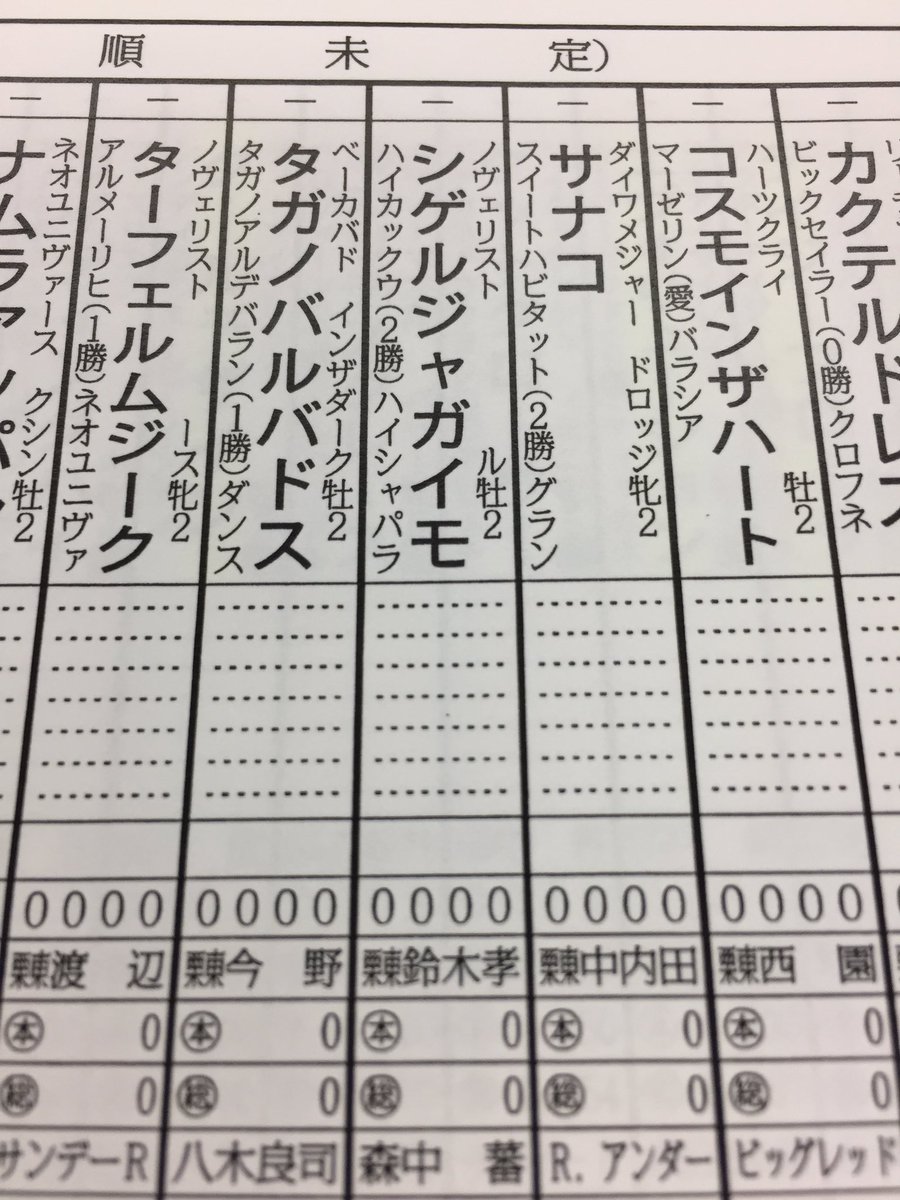 順 未 定)
一 一 一 一 一 一 一
カクテルドレス
ビックセイラー(0勝)クロフネ
ハーツクライ 牡2
コスモインザハート
マーゼリン(愛)バラシア
ダイワメジャー ドロッジ牝2
サナコ
スイートハビタット(2勝)グラン
ノヴェリスト ル牡2
シゲルジャガイモ
ハイカックウ(2勝)ハイシャパラ
ベーカバド インザダーク牡2
タガノバルバドス
タガノアルデバラン(1勝)ダンス
ノヴェリスト ース牝2
ターフェルムジーク
アルメーリヒ(1勝)ネオユニヴァ
ネオユニヴァース クシン牡2
0000 0000 0000 0000 0000
栗東渡辺 栗東今野 栗東鈴木孝 栗東中内田 栗東西園
本 0 本 0 本 0 本 0 本 0
総 0 総 0 総 0 総 0 総 0
サンデーR 八木良司 森中蕃 R.アンダー ビッグレッド